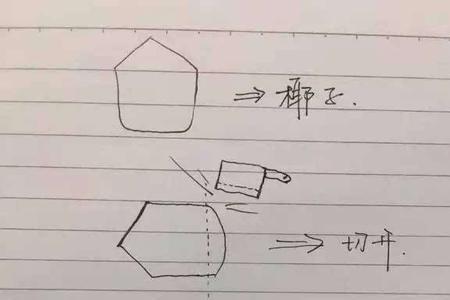 ⇒椰子.
⇒切开.